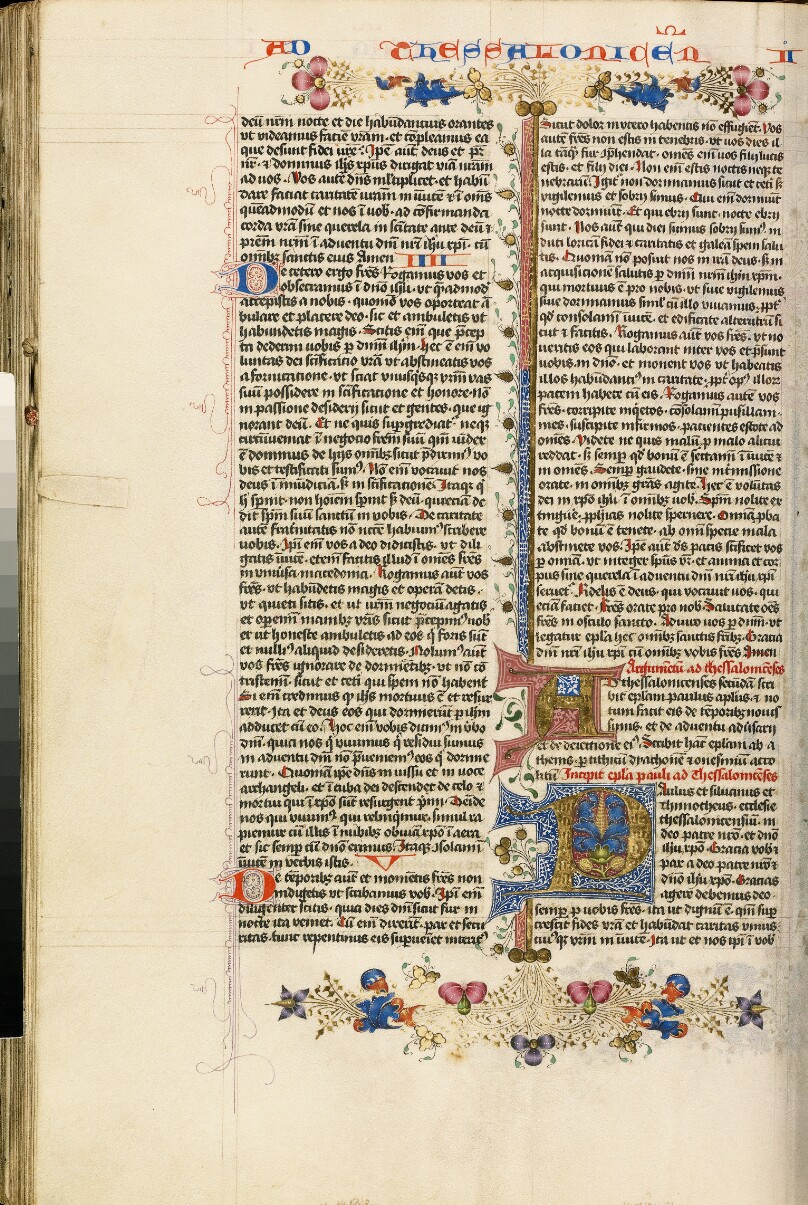 AD THESSALONICEN II
deū nr̄m nocte et die habūdantius orantes
vt videamus faciē vrām. et cōpleamus ea
que desunt fidei vr̄e. Ip̄e aut̄ deus et pr̄
nr̄. et dominus ih̄s xp̄us dirigat viā nrām
ad vos. Vos autē dn̄s ml̄tiplicet. et habū
dare faciat caritatē vrām in īuicē et ī om̄s
quēadmodū et nos ī vob̄. ad cōfirmanda
corda vrā sine querela in sc̄itate ante deū et
prēm nrm̄ ī aduentu dn̄i nrī ih̄u xp̄i. cū
om̄ibꝫ sanctis eius Amen IIII
De cetero ergo frēs Rogamus vos et
obsecramus ī dn̄o ih̄u. vt q̄admod
accepistis a nobis. quomō vos oporteat ā
bulare et placere deo. sic et ambuletis vt
habundetis magis. Scitis eīm que p̄cep
ta dederim uobis ꝑ dnm̄ ih̄m. Hec ē eīm vo
luntas dei sc̄ificatio vrā vt abstineatis vos
a fornicatione. vt sciat vnusq̄sqꝫ vrm̄ vas
suū possidere in sc̄ificatione et honore. nō
in passione desiderij sicut et gentes. que ig
norant deū. Et ne quis supgrediat̄ neqꝫ
circūueniat ī negocio frēm suū qm̄ uidex
ē dominus de hijs om̄ibꝫ sicut p̄dixim⁹ vo
bis et testificati sum⁹. Nō eīm vocauit nos
deus ī mūdicia. sꝫ in sc̄ificationē. Itaqꝫ q̄
h̄ spnit. non hoīem spnit sꝫ deū. qui eciā de
dit spm̄ suū sanctū in vobis. De caritate
autē frat̄nitatis nō necē habuim⁹ scribere
uobis. Ipī eīm vos a deo didicistis. vt dili
gatis īuicē. etenī facitis illud ī omēs frēs
in vniūsa macedonia. Rogamus aut̄ vos
frēs. vt habūdetis magis et operā detis.
vt quieti sitis. et ut urm̄ negociū agatis
et opemī manibꝫ vrīs sicut p̄cepim⁹ uob̄
et ut honeste ambuletis ad eos q̄ foris sūt
et nulli⁹ aliquid desideretis. Nolum⁹ aut̄
vos frēs ignorare de dormiētibꝫ. ut nō cō
tristemī. sicut et ceti qui spem nō habent
Si eīm credimus qꝫ ih̄s mortuus ē et resur
rexit. Ita et deus eos qui dormierūt ꝑ ih̄m
adducet cū eo. Hoc eīm vobis dicim⁹ in v̄bo
dn̄i. quia nos q̄ viuimus q̄ residui sumus
in aduentū dn̄i nō p̄ueniem⁹ eos q̄ dormie
runt. Quoniā ip̄e dn̄s in iussu et in uoce
archangeli. et ī tuba dei descendet de celo et
mortui qui ī xp̄o sūt resurgent p̄mi. Deīde
nos qui viuim⁹ qui relinquimur. simul ra
piemur cū illis ī nubibꝫ obuiā xp̄o ī aera
et sic semp cū dn̄o erimus. Itaqꝫ ꝯsolamī
īuicē in verbis istis. V
De tēporibꝫ aut̄ et momētis frēs non
indigetis vt scribamus vob̄. Ipī eīm
diligenter scitis. quia dies dn̄i sicut fur in
nocte ita veniet. Cū eīm dixerīt. pax et secu
ritas. tunc repentinus eis supueīet īterit⁹
Sicut dolor in vtero habentis nō effugiēt. Vos
autē frēs non estis in tenebris. vt uos dies il
la tāqꝫ fur ꝯphendat. omēs eīm uos filij lucis
estis. et filij diei. Non eīm estis noctis neqꝫ te
nebrarū. Igit̄ non dormiamus sicut et ceti sꝫ
vigilemus et sobrij simus. Qui eīm dormiūt
nocte dormiūt. Et qui ebrij sunt. nocte ebrij
sunt. Nos aut̄ qui diei sumus sobrij sum⁹. in
duti loricā fidei et caritatis et galeā spem salu
tis. Quoniā nō posuit nos in irā deus. sꝫ in
acquisitionē salutis ꝑ dnm̄ nrm̄ ih̄m xp̄m.
qui mortuus ē pro nobis. vt siue vigilemus
siue dormiamus siml̄ cū illo viuamus. ꝓpt̄
qd̄ consolamī īuicē. et edificate alterutrū si
cut et facitis. Rogamus aut̄ vos frēs. vt no
ueritis eos qui laborant inter vos et p̄sunt
uobis in dn̄o. et monent vos vt habeatis
illos habūdanti⁹ in caritate. ꝓpt̄ op⁹ illoꝝ
pacem habete cū eis. Rogamus autē vos
frēs. corripite inq̄etos. cōsolamī pusillani
mes. suscipite infirmos. patientes estote ad
omēs. Videte ne quis malū ꝓ malo alicui
reddat. sꝫ semp qd̄ bonū ē sectamī ī īuicē et
in omēs. Semp gaudete. sine int̄missione
orate. in om̄ibꝫ grās agite. Hec ē volūtas
dei in xp̄o ih̄u ī om̄ibꝫ uob̄. Spm̄ nolite ex
tinguē. ꝓphīas nolite spernere. Omia ꝓba
te. qd̄ bonū ē tenete. ab om̄i specie mala
abstinete vos. Ip̄e aut̄ ds̄ pacis sc̄ificet vos
ꝑ om̄ia. vt integer spūs vr̄. et anima et cor
pus sine querela ī aduentū dn̄i nrī ih̄u xp̄i
seruet̄. Fidelis ē deus. qui vocauit vos. qui
eciā faciet. Frēs orate pro nob̄. Salutate oēs
frēs in osculo sancto. Adiuro vos ꝑ dnm̄. vt
legatur epl̄a hec om̄ibꝫ sanctis frībꝫ. Gracia
dn̄i nrī ih̄u xp̄i cū om̄ibꝫ vobis frēs Amen
Argumētū ad thessalonicēses
Ad thessalonicenses secūdā scri
bit epl̄am paulus apl̄us. et no
tum facit eis de tēporibꝫ nouis
simis. et de aduentu adūsarij
et de deiectione ei⁹. Scribit hāc epl̄am ab a
thenis. ꝑ tithicū dyaconē et onesimū acco
litū. Incipit epl̄a pauli ad Thessalonicēses
Paulus et siluanus et
thimotheus. ecclesie
thessalonicensiū. in
deo patre nr̄o. et dn̄o
ih̄u xp̄o. Gracia vob̄ et
pax a deo patre nr̄o et
dn̄o ih̄u xp̄o. Gracias
agere debemus deo.
semp ꝓ uobis frēs. ita ut dignū ē. qm̄ sup
crescit fides vrā et habūdat caritas vnius
cui⁹qꝫ vrm̄ in īuicē. Ita ut et nos ipī ī vob̄